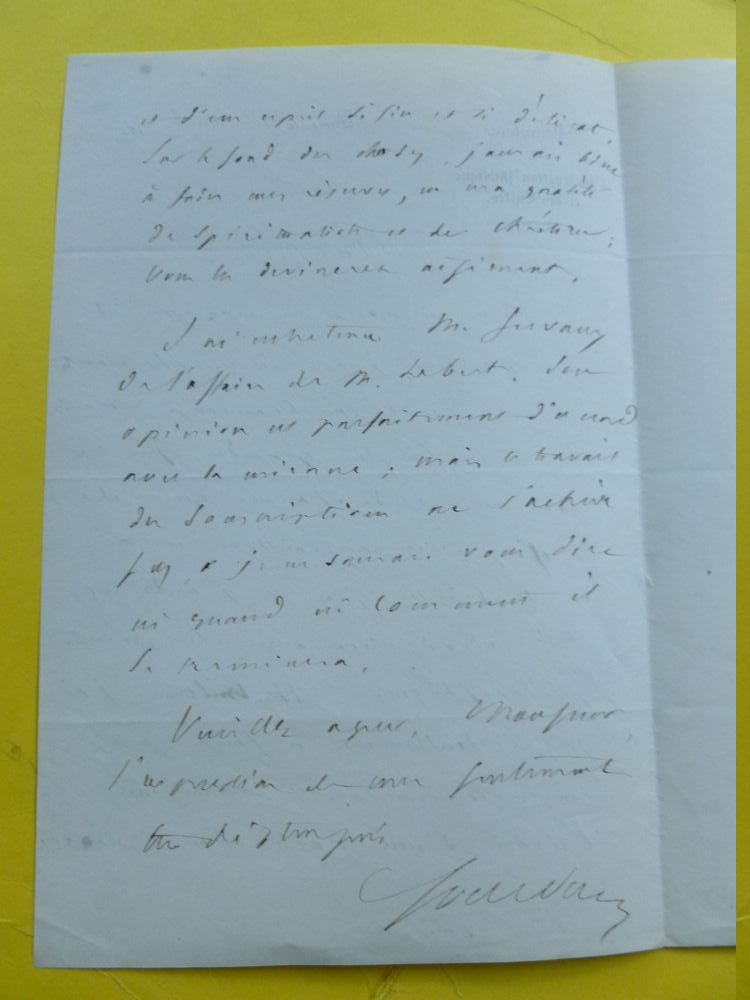 et d'un esprit si fin et si délicat.
Sur le fond des choses, j'aurais bien
à faire mes réserves, en ma qualité
de spiritualiste et de chrétien;
vous les devinerez aisément.
J'ai entretenu M. Servaux
de l'affaire de M. Labert. Son
opinion est parfaitement d'accord
avec la mienne; mais ce travail
des souscriptions ne s'achève
pas, et je ne saurais vous dire
ni quand ni comment il
se terminera.
Veuillez agréer, Monsieur,
l'expression de mes sentiments
les distingués